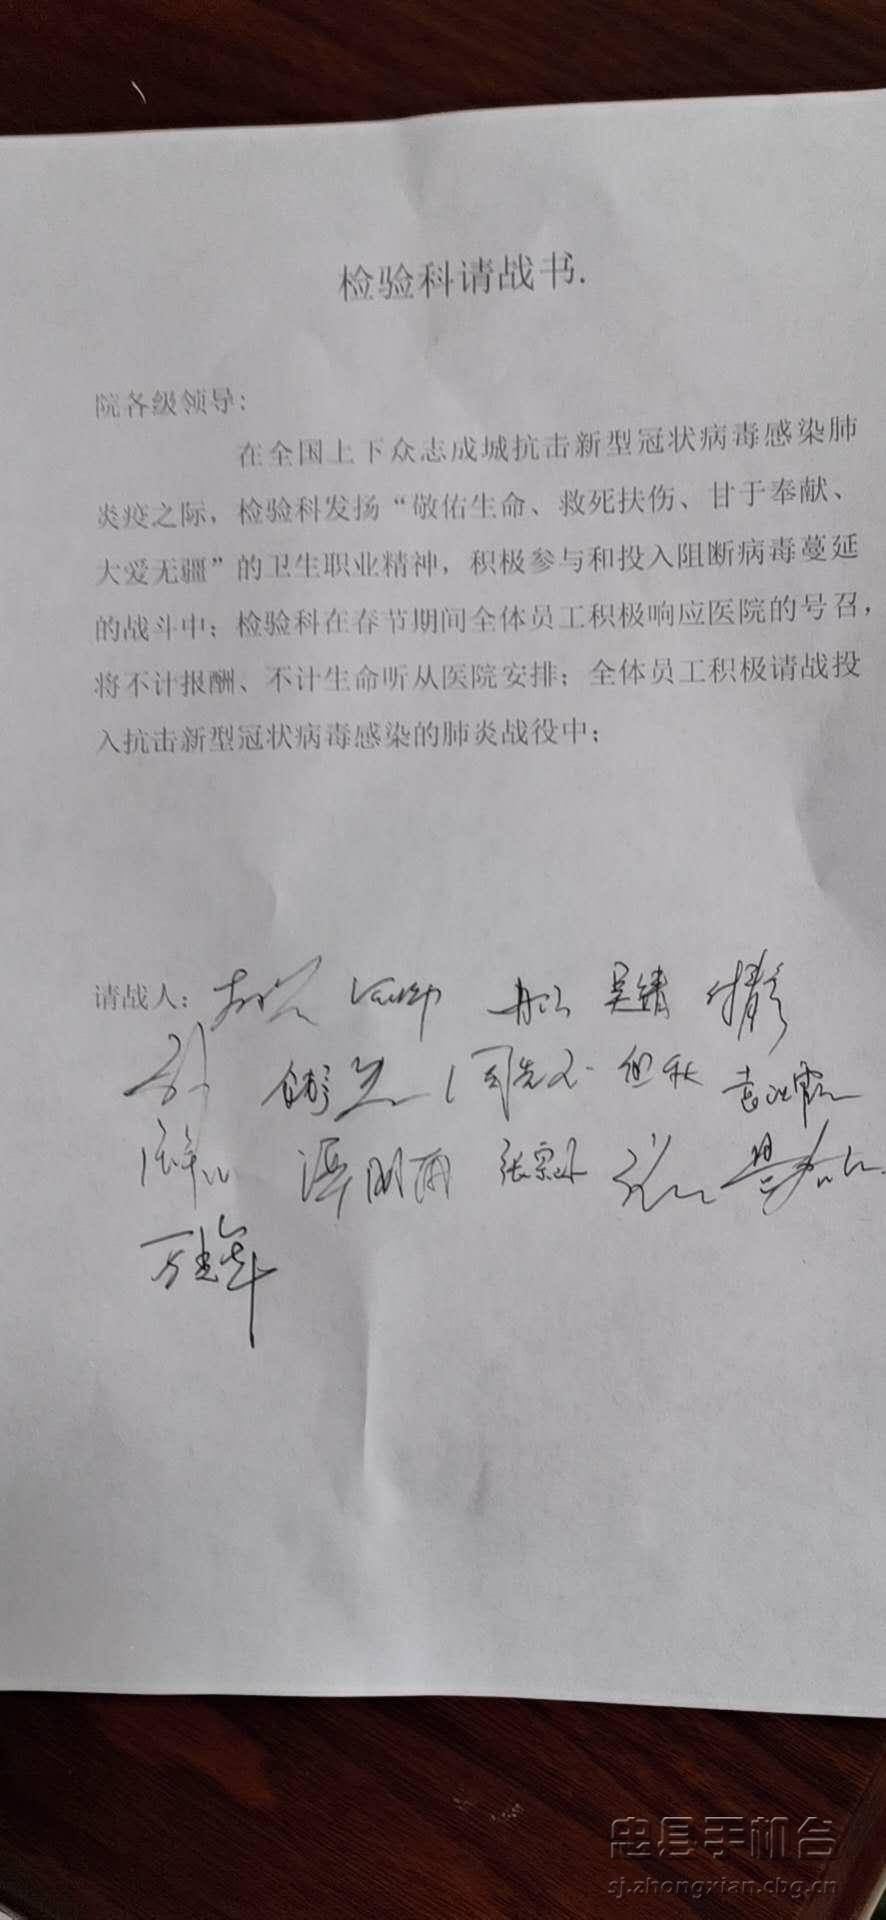 检验科请战书.
院各级领导:
在全国上下众志成城抗击新型冠状病毒感染肺
炎疫之际，检验科发扬“敬佑生命、救死扶伤、甘于奉献、
大爱无疆”的卫生职业精神，积极参与和投入阻断病毒蔓延
的战斗中；检验科在春节期间全体员工积极响应医院的号召，
将不计报酬、不计生命听从医院安排；全体员工积极请战投
入抗击新型冠状病毒感染的肺炎战役中；
请战人： 吴靖
但秋
谭明雨
忠县手机台
sj.zhongxian.cbg.cn